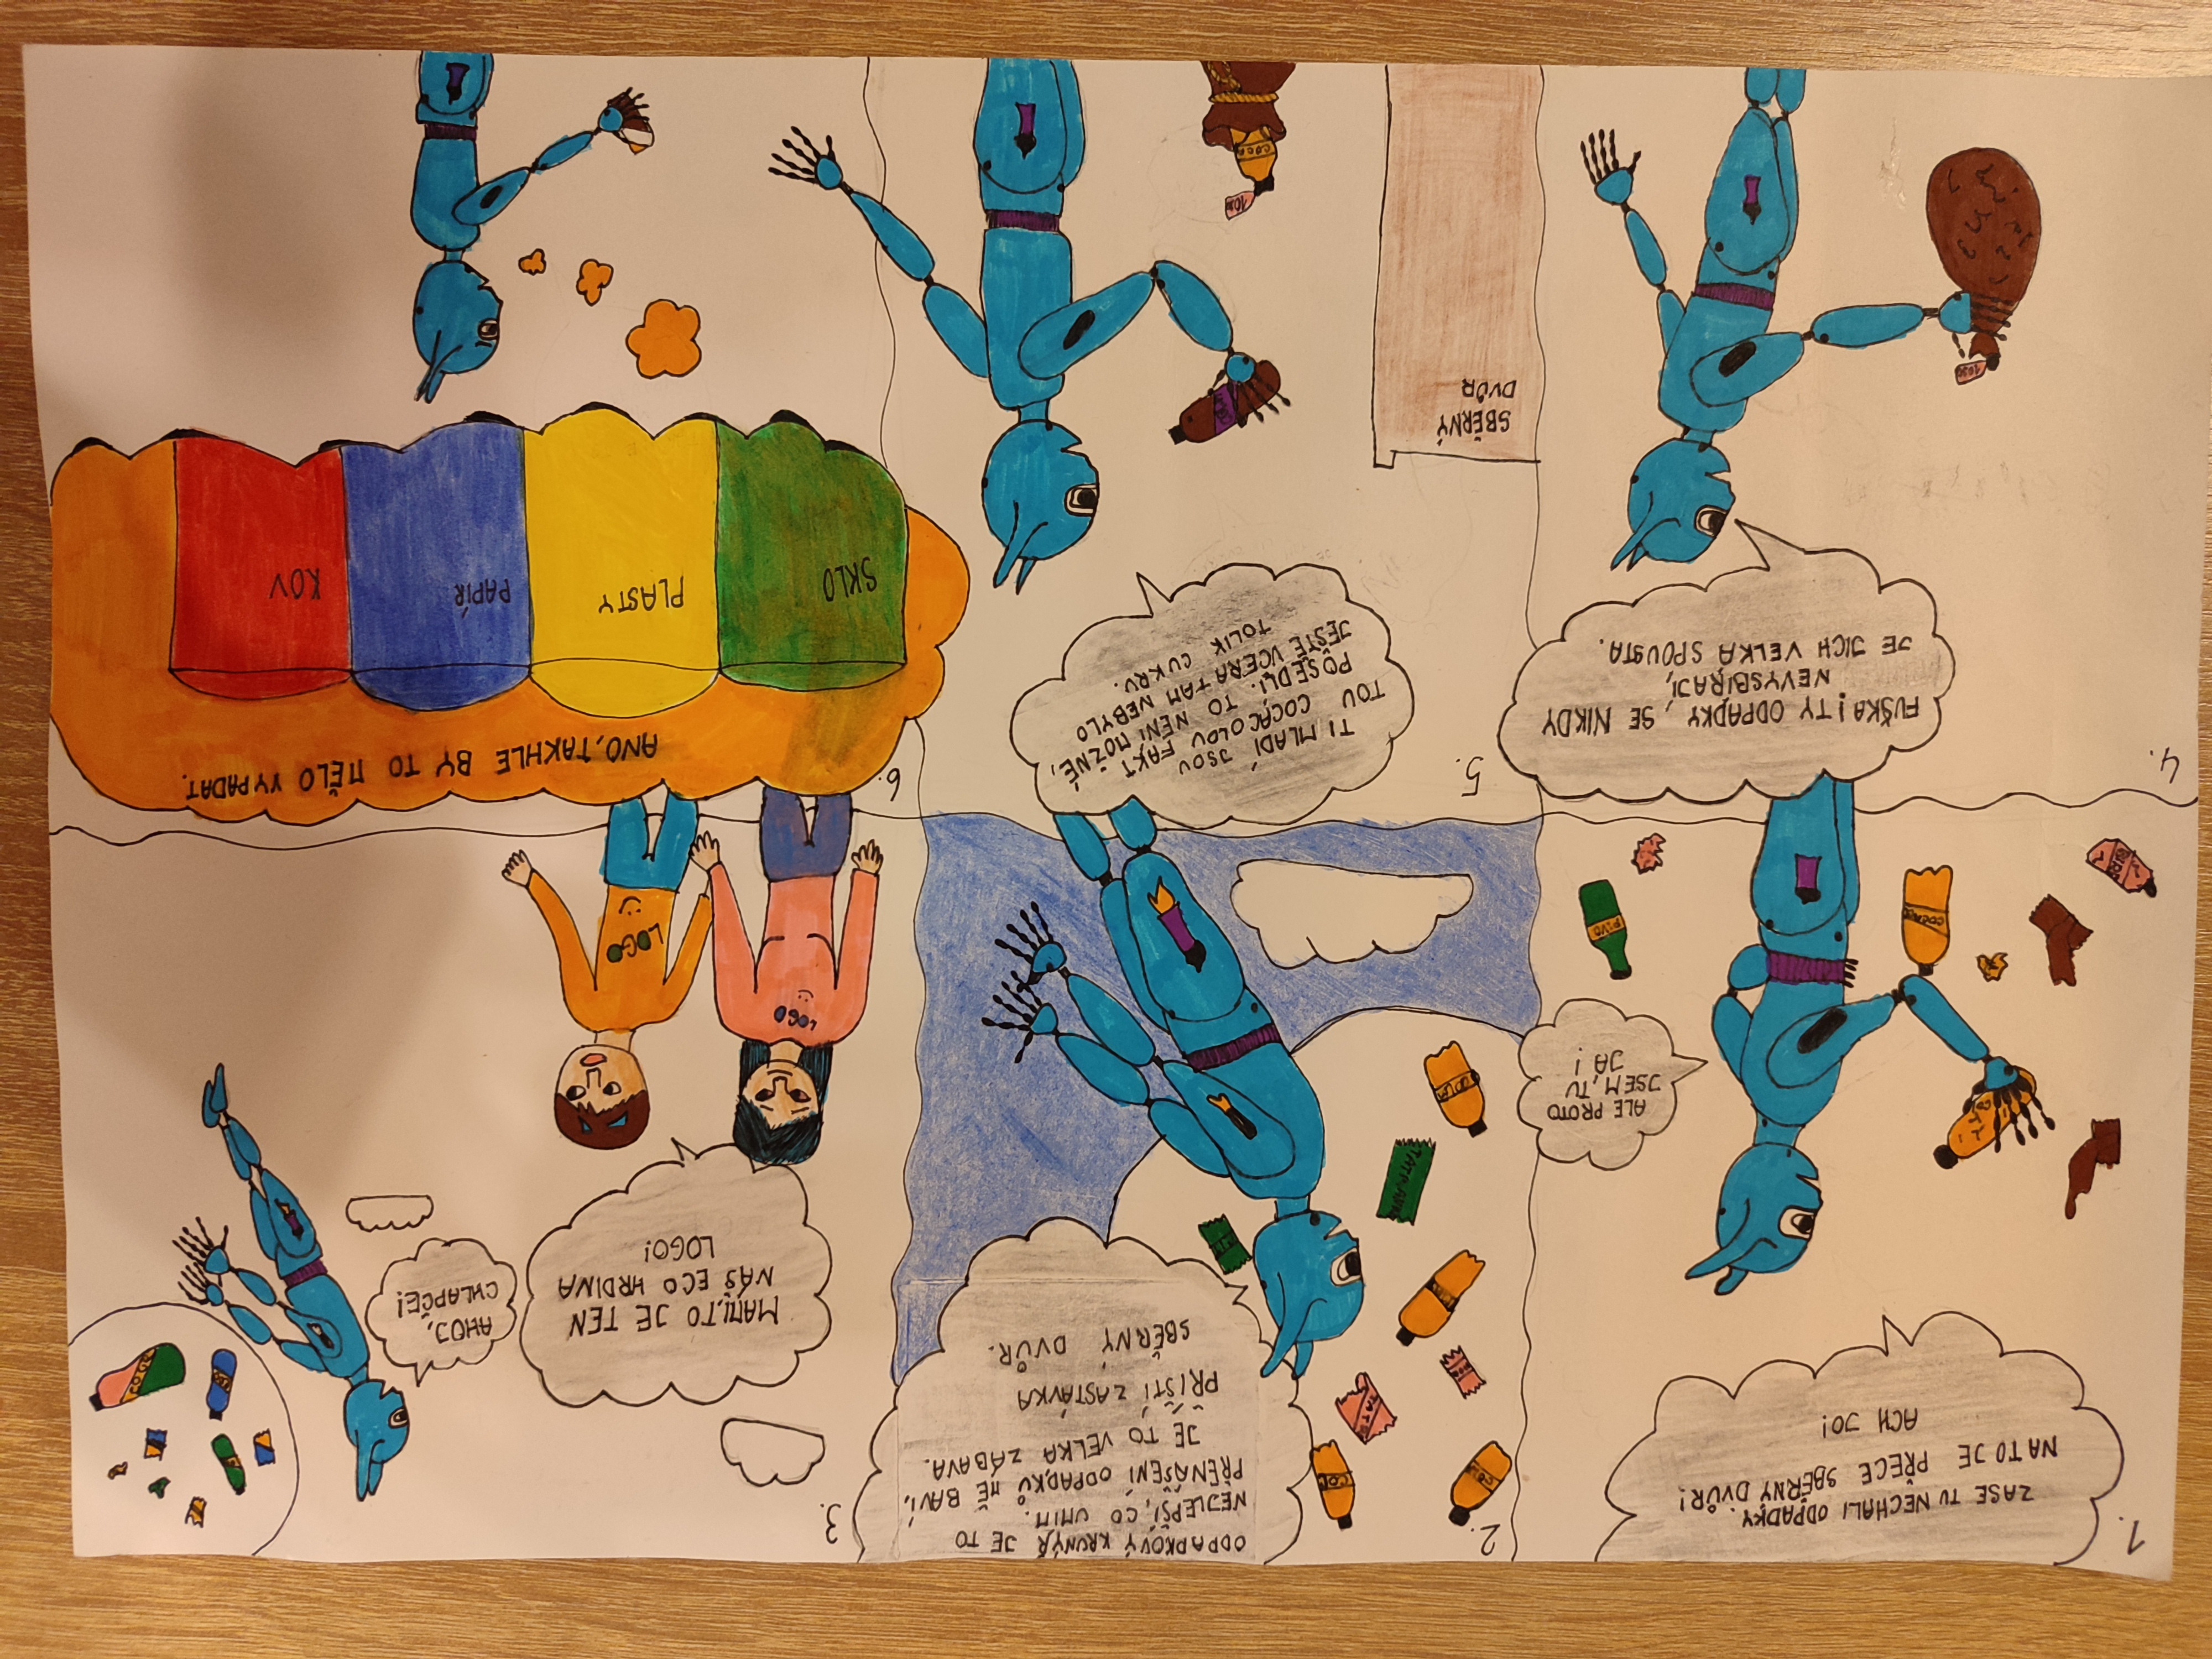 1.
ZASE TU NECHALI ODPADKY.
NA TO JE PŘECE SBĚRNÝ DVŮR!
ACH JO!
ALE PROTO
JSEM TU
JÁ!
COCA
PIVO
2.
ODPADKOVÝ KRUNÝŘ JE TO
NEJLEPŠÍ, CO UMÍM.
PŘENÁŠENÍ ODPADKŮ MĚ BAVÍ,
JE TO VELKÁ ZÁBAVA.
PŘÍŠTÍ ZASTÁVKA
SBĚRNÝ DVŮR.
3.
MAMI, TO JE TEN
NÁŠ ECO HRDINA
LOGO!
AHOJ,
CHLAPČE!
LOGO
LOGO
4.
FUŠKA! TY ODPADKY, SE NIKDY
NEVYSBÍRAJÍ,
JE JICH VELKÁ SPOUSTA.
5.
TI MLADÍ JSOU
TOU COCACOLOU FAKT
POSEDLÍ. TO NENÍ MOŽNÉ,
JEŠTĚ VČERA TAM NEBYLO
TOLIK CUKRU.
SBĚRNÝ
DVŮR
COCA
6.
ANO, TAKHLE BY TO MĚLO VYPADAT.
SKLO
PLASTY
PAPÍR
KOV